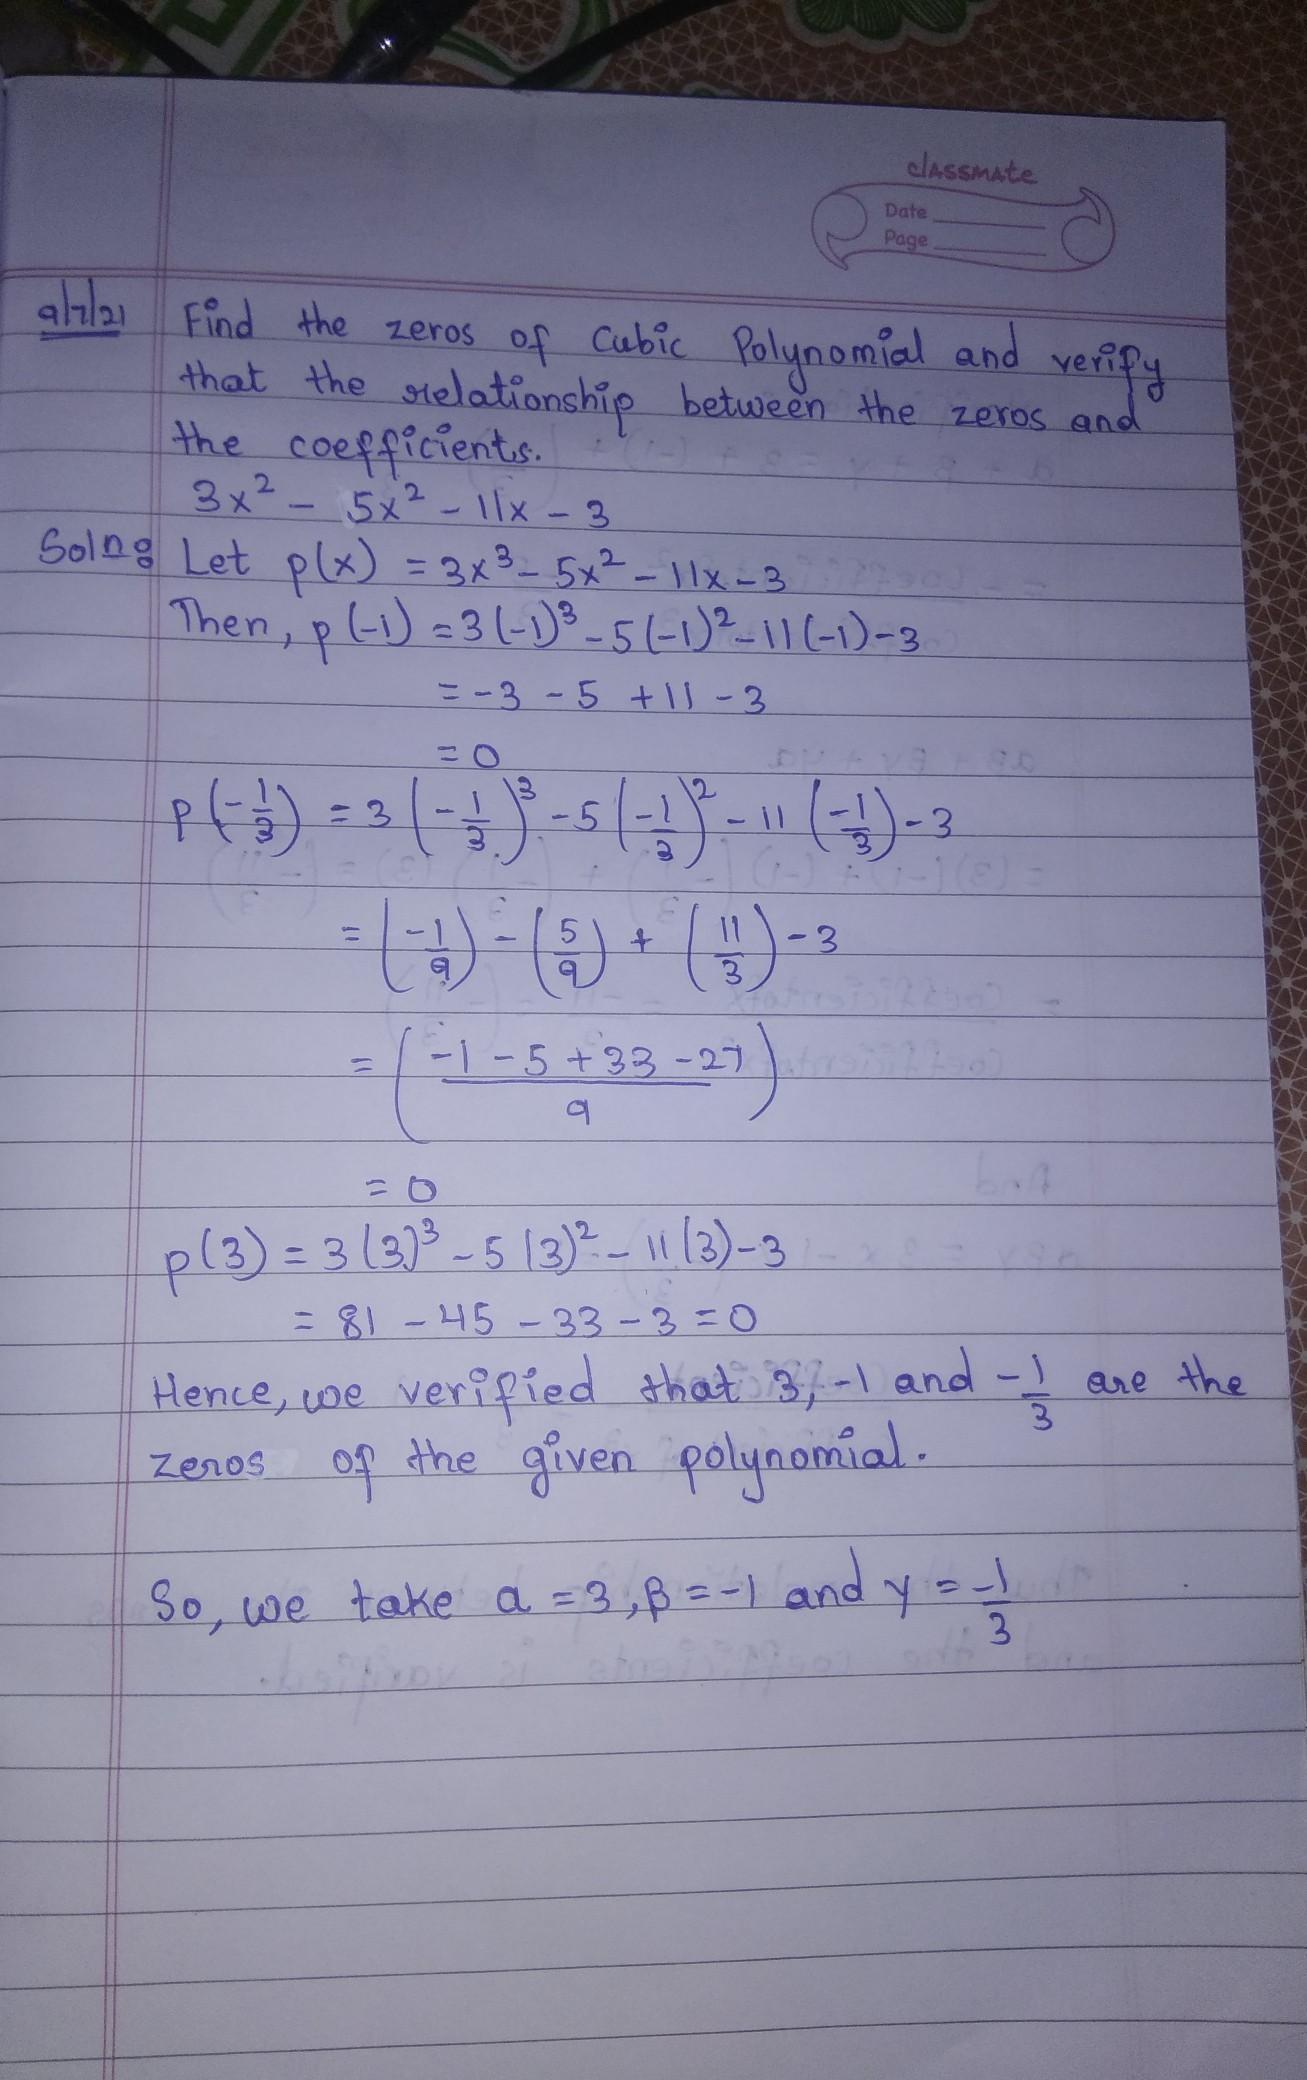 classmate
Date
Page
9/7/21 Find the zeros of Cubic Polynomial and verify
that the relationship between the zeros and
the coefficients.
3x² - 5x² - 11x - 3
Soln: Let p(x) = 3x³ - 5x² - 11x - 3
Then, p(-1) = 3(-1)³ - 5(-1)² - 11(-1) - 3
= -3 - 5 + 11 - 3
= 0
p(-1/3) = 3(-1/3)³ - 5(-1/3)² - 11(-1/3) - 3
= (-1/9) - (5/9) + (11/3) - 3
= (-1 - 5 + 33 - 27 / 9)
= 0
p(3) = 3(3)³ - 5(3)² - 11(3) - 3
= 81 - 45 - 33 - 3 = 0
Hence, we verified that 3, -1 and -1/3 are the
zeros of the given polynomial.
So, we take α = 3, β = -1 and γ = -1/3